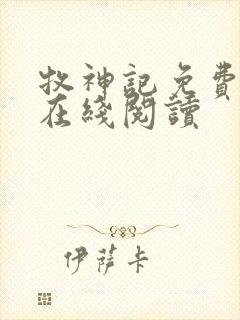 牧神記免費
在綫閱讀
伊薩卡